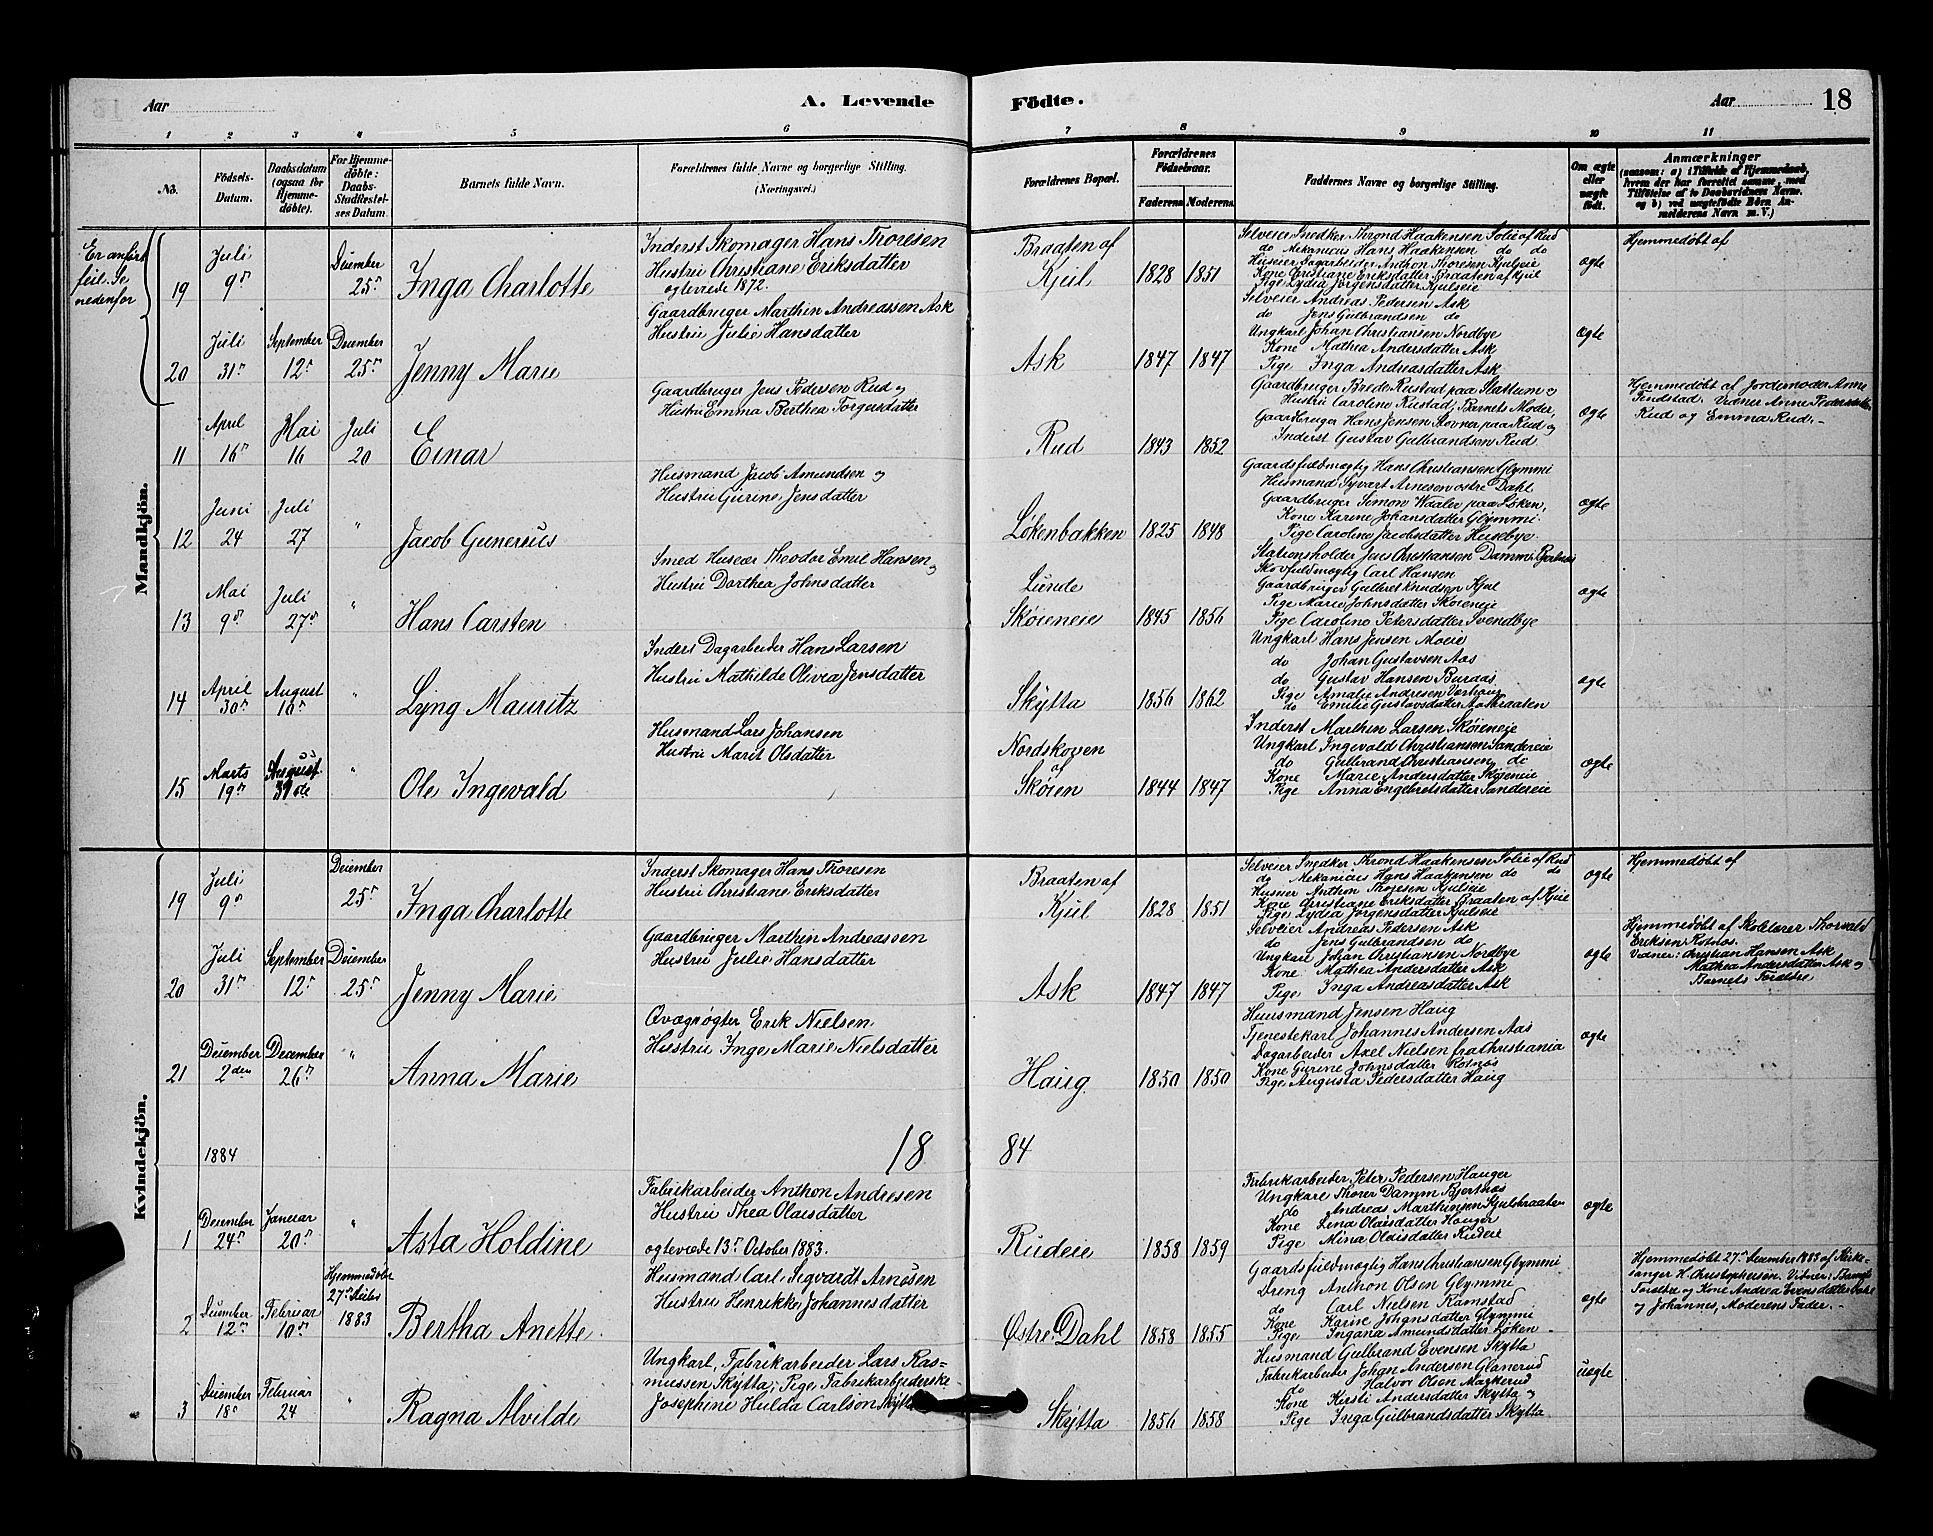 Aar
A. Levende
Födte.
Aar
18
1 2 3 4 5 6 7 8 9 10 11
No.
Födsels-Datum.
Daabsdatum (ogsaa for Hjemme-døbte).
For Hjemme-døbte: Daabs-Stadfæstel-ses Datum.
Barnets fulde Navn.
Forældrenes fulde Navne og borgerlige Stilling. (Næringsvei.)
Forældrenes Bopæl.
Forældrenes Födselsaar.
Faderens Moderens
Faddernes Navne og borgerlige Stilling.
Om ægte eller uægte födt.
Anmærkninger
(saasom: a) i Tilfælde af Hjemmedaab,
hvem der har forrettet samme, med
Tilföielse af to Daabsvidners Navne,
og b) ved uægtefödte Börn An-
melderens Navn m. V.)
Mandkjön.
Er anfört
feil. Se
nedenfor
19
Juli
9de
December
25de
Inga Charlotte
Inderst Skomager Hans Thoresen
Hustru Christiane Eriksdatter
egteviede 1872.
Braaten af
Kjul
1828 1851
Selveier Snedker Thrond Haakensen Solie af Rud
do Mekanicus Hans Haakensen do do
Huseier Dagarbeider Anthon Thoresen Kjulseie
Kone Cristiane Eriksdatter Braaten af Kjul
Pige Lydia Jörgensdatter Kjulseie
ægte
Hjemmedøbt af
20
Juli
31te
September
12te
December
25de
Jenny Marie
Gaardbruger Marthin Andreassen Ask
Hustru Julie Hansdatter
Ask
1847 1847
Selveier Andreas Pedersen Ask
do Jens Gulbrandsen do
Ungkarl Johan Christiansen Nordbye
Kone Mathea Andersdatter Ask
Pige Inga Andreasdatter Ask
ægte
11
April
16de
Mai
16
Juli
20
Einar
Gaardbruger Jens Pedersen Rud og
Hustru Emma Berthea Torgersdatter
Rud
1843 1852
Gaardbruger Brede Rustad paa Slattum og
Hustru Caroline Rustad, Barnets Moder,
Gaardbruger Hans Jensen Stovner paa Rud og
Inderst Gustav Gulbrandsen Rud.
ægte
Hjemmedøbt af Jordemoder Anne
Tindstad. Vidner Anne Pedersdatter
Rud og Emma Rud.-
12
Juni
24
Juli
27
"
Jacob Gunerius
Husmand Jacob Amundsen og
Hustru Gurine Jensdatter
Løkenbakken
1825 1848
Gaardsfuldmægtig Hans Christiansen Glymmi
Husmand Syvart Arnesen østre Dahl
Gaardbruger Simon Waaler paa Løken,
Kone Karine Johansdatter Glymmi.
Pige Caroline Jacobsdatter Husebye.
ægte
13
Mai
9de
Juli
27de
"
Hans Carsten
Smed Huseier Theodor Emil Hansen og
Hustru Dorthea Johnsdatter
Lunde
Skøieneie
1845 1856
Stationsholder Jens Christiansen Damm
Skovfuldmægtig Carl Hansen
Gaardbruger Gulbret Knudsen Kjul
Pige Marie Johnsdatter Skøieneie
Pige Caroline Petersdatter Svendbye
ægte
14
April
30te
August
10de
"
Lyng Mauritz
Inderst Dagarbeider Hans Larsen
Hustru Mathilde Olivea Jensdatter
Skÿtta
1856 1862
Ungkarl Hans Jensen Moeie
do Johan Gustavsen Aas
do Gustav Hansen Buraas
Pige Amalie Andresen
do Emilie Gustavsdatter Aasbraaten
ægte
15
Marts
19de
August
31de
"
Ole Ingevald
Husmand Lars Johansen
Hustru Marit Olsdatter
Nordskoven
af
Skøien
1844 1847
Inderst Marthin Larsen Skøieneie
Ungkarl Ingevald Christiansen Sandereie
do Gulbrand Christiansen do
Kone Marie Andersdatter Skøieneie
Pige Anna Engebretsdatter Sandereie
ægte
Kvindekjön.
19
Juli
9de
December
25de
Inga Charlotte
Inderst Skomager Hans Thoresen
Hustru Christiane Eriksdatter
Braaten af
Kjul
1828 1851
Selveier Snedker Thrond Haakensen Solie af Rud
do Mekanicus Hans Haakensen do do
Huseier Anthon Thoresen Kjulseie
Kone Christiane Eriksdatter Braaten af Kjul
Pige Lydia Jørgensdatter Kjulseie
ægte
Hjemmedøbt af
20
Juli
31te
September
12te
December
25de
Jenny Marie
Gaardbruger Marthin Andreassen
Hustru Julie Hansdatter
Ask
1847 1847
Selveier Andreas Pedersen Ask
do Jens Gulbrandsen do
Ungkarl Johan Christiansen Nordbye
Kone Mathea Andersdatter Ask
Pige Inga Andreasdatter Ask
ægte
Hjemmedøbt af Skolelærer Thorvald
Eriksen Rotnæs.
Vidner: Christian Hansen Ask
Mathea Andersdatter Ask og
Barnets Forældre
21
December
2den
December
26de
"
Anna Marie
Qvægrøgter Erik Nielsen,
Hustru Inge Marie Nielsdatter
Haug
1850 1850
Huusmand Jensen Haug
Tjenestekarl Johannes Andersen Aas
Dagarbeider Axel Nielsen fra Christiania
Kone Gurine Johnsdatter Rotnæs
Pige Augusta Pedersdatter Haug
ægte
1884
18 84
1
December
24de
Januar
20de
"
Asta Holdine
Fabrikarbeider Anthon Andresen
Hustru Thea Olaisdatter
egteviede 13de October 1883.
Rudeie
1858 1859
Fabrikarbeider Peter Pedersen Hauger
Ungkarl Thorer Damm Bjertnæs
do Andreas Marthinsen Kjulsbraaten
Kone Lina Olaisdatter Hauger
Pige Mina Olaisdatter Rudeie
ægte
2
December
12te
Februar
10de
Hjemmedøbt
27de Decbr
1883
Bertha Anette.
Husmand, Carl Sigvardt Arnesen
Hustru Henrikke Johannesdatter
Østre Dahl
1858 1855
Gaardsfuldmægtig Hans Christiansen Glymmi
Dreng Anthon Olsen Glymmi
do Carl Nielsen Ramstad
Kone Karine Johansdatter Glymmi
Pige Ingana Amundsdatter Løken
ægte
Hjemmedøbt 27de December 1883 af Kirke-
sanger H. Christophersen. Vidner: Barnets
Forældre og Kone Andrea Evensdatter
og Johannes, Moderens Fader.-
3
December
18de
Februar
24
"
Ragna Alvilde
Ungkarl, Fabrikarbeider Lars Ras-
mussen Skytta, Pige Fabrikarbeiderske
Josephine Hulda Carlson Skytta
Skÿtta
1856 1858
Husmand Gulbrand Evensen Skytta
Fabrikarbeider Johan Andersen Glanerud
do Halvor Olsen Magkerud
Kone Kirsti Andersdatter Skytta og
Pige Inga Gulbrandsdatter Skytta
uægte